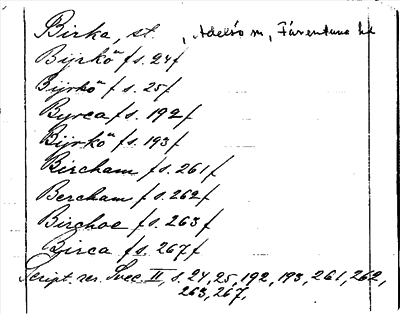 Birka, st. , Adelsö sn, Färentuna hd
Bijrköö f s. 24 f
Bijrköö f s. 25 f
Byrca f s. 192 f
Bijrköö f s. 193 f
Bircham f s. 261 f
Bercham f s. 262 f
Birchoe f s. 263 f
Birca f s. 267 f
Script. rer. Svec. II, s. 24, 25, 192, 193, 261, 262,
263, 267,